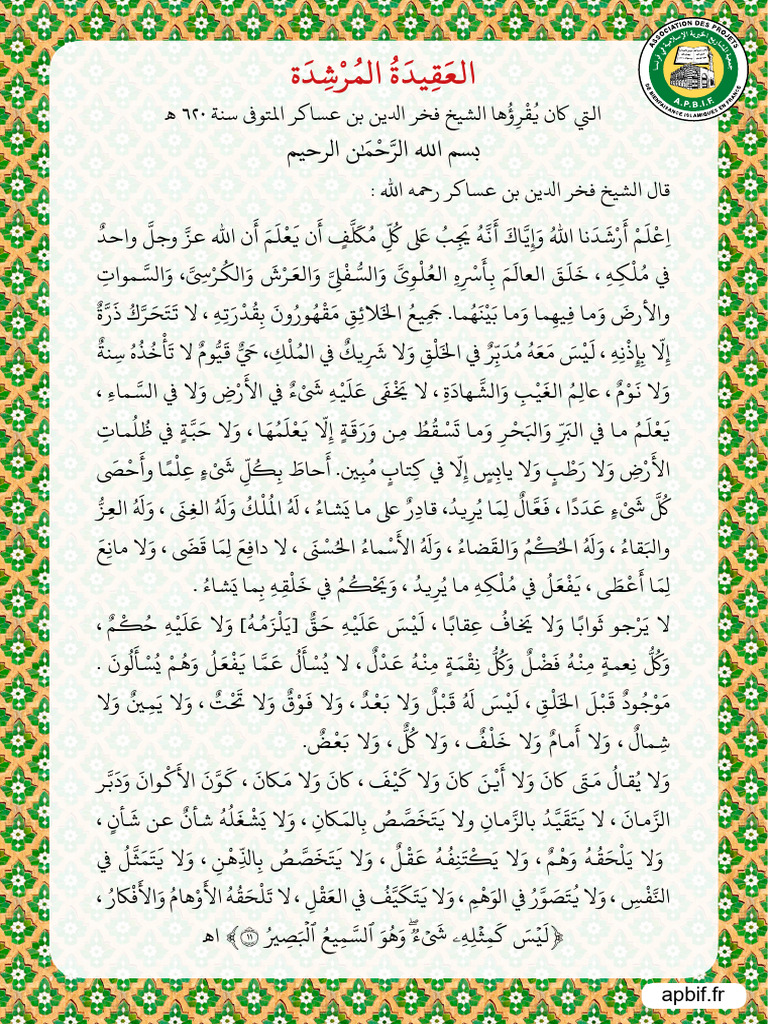 العَقِيدَةُ المُرْشِدَة
التي كان يُقْرِؤُها الشيخ فخر الدين بن عساكر المتوفى سنة ٦٢٠ ھ
بسم الله الرَّحْمَـٰن الرحيم
قال الشيخ فخر الدين بن عساكر رحمه الله :
اِعْلَمْ أَرْشَدَنا اللهُ وَإِيَّاكَ أَنَّهُ يَجِبُ عَلى كُلِّ مُكَلَّفٍ أَن يَعْلَمَ أَن الله عزَّ وجلَّ واحدٌ
في مُلْكِهِ ، خَلَقَ العالَمَ بِأَسْرِهِ العُلْوِىَّ وَالسُّفْلِىَّ وَالعَرْشَ وَالكُرْسِىَّ، وَالسَّمواتِ
والأرضَ وَما فِيهِما وَما بَيْنَهُما. جَمِيعُ الخَلائِقِ مَقْهُورُونَ بِقُدْرَتِهِ ، لا تَتَحَرَّكُ ذَرَّةٌ
إِلّا بِإِذْنِهِ ، لَيْسَ مَعَهُ مُدَبِّرٌ في الخَلْقِ وَلا شَرِيكٌ في المُلْكِ، حَيٌّ قَيُّومٌ لا تَأْخُذُهُ سِنةٌ
وَلا نَوْمٌ ، عالِمُ الغَيْبِ وَالشَّهادَةِ ، لا يَخْفَى عَلَيْهِ شَىْءٌ في الأَرْضِ وَلا في السَّماءِ ،
يَعْلَمُ ما في البَرِّ وَالبَحْرِ وَما تَسْقُطُ مِن وَرَقَةٍ إِلّا يَعْلَمُهَا ، وَلا حَبَّةٍ في ظُلُماتِ
الأَرْضِ وَلا رَطْبٍ وَلا يابِسٍ إِلّا في كِتابٍ مُبِين. أَحاطَ بِكُلِّ شَىْءٍ عِلْمًا وأَحْصَى
كُلَّ شَىْءٍ عَدَدًا ، فَعَّالٌ لِمَا يُرِيدُ، قادِرٌ على ما يَشاءُ ، لَهُ المُلْكُ وَلَهُ الغِنَى ، وَلَهُ العِزُّ
والبَقاءُ ، وَلَهُ الحُكْمُ وَالقَضاءُ ، وَلَهُ الأَسْماءُ الحُسْنَى ، لا دافِعَ لِمَا قَضَى ، وَلا مانِعَ
لِمَا أَعْطَى ، يَفْعَلُ في مُلْكِهِ ما يُرِيدُ ، وَيَحْكُمُ في خَلْقِهِ بِما يَشاءُ .
لا يَرْجو ثَوابًا وَلا يَخافُ عِقابًا ، لَيْسَ عَلَيْهِ حَقٌّ [يَلْزَمُهُ] وَلا عَلَيْهِ حُكْمٌ ،
وَكُلُّ نِعمةٍ مِنْهُ فَضْلٌ وَكُلُّ نِقْمَةٍ مِنْهُ عَدْلٌ ، لا يُسْأَلُ عَمَّا يَفْعَلُ وَهُمْ يُسْأَلُونَ .
مَوْجُودٌ قَبْلَ الخَلْقِ ، لَيْسَ لَهُ قَبْلٌ وَلا بَعْدٌ ، وَلا فَوْقٌ وَلا تَحْتٌ ، وَلا يَمِينٌ وَلا
شِمالٌ ، وَلا أَمامٌ وَلا خَلْفٌ ، وَلا كُلٌّ ، وَلا بَعْضٌ.
وَلا يُقالُ مَتَى كانَ وَلا أَيْنَ كانَ وَلا كَيْفَ ، كانَ وَلا مَكانَ ، كَوَّنَ الأَكْوانَ وَدَبَّر
الزَّمانَ ، لا يَتَقَيَّدُ بالزَّمانِ ولا يَتَخَصَّصُ بِالمَكانِ ، وَلا يَشْغَلُهُ شأنٌ عن شَأنٍ ،
وَلا يَلْحَقُهُ وَهْمٌ ، وَلا يَكْتَنِفُهُ عَقْلٌ ، وَلا يَتَخَصَّصُ بِالذِّهْنِ ، وَلا يَتَمَثَّلُ في
النَّفْسِ ، وَلا يُتَصَوَّرُ في الوَهْمِ ، وَلا يَتَكَيَّفُ في العَقْلِ ، لا تَلْحَقُهُ الأَوْهامُ وَالأَفْكارُ ،
﴿لَيْسَ كَمِثْلِهِۦ شَىْءٌ ۖ وَهُوَ ٱلسَّمِيعُ ٱلْبَصِيرُ ۝١١﴾ اهـ
ASSOCIATION DES PROJETS
جمعية المشاريع الخيرية الإسلامية في فرنسا
A.P.B.I.F.
DE BIENFAISANCE ISLAMIQUES EN FRANCE
apbif.fr